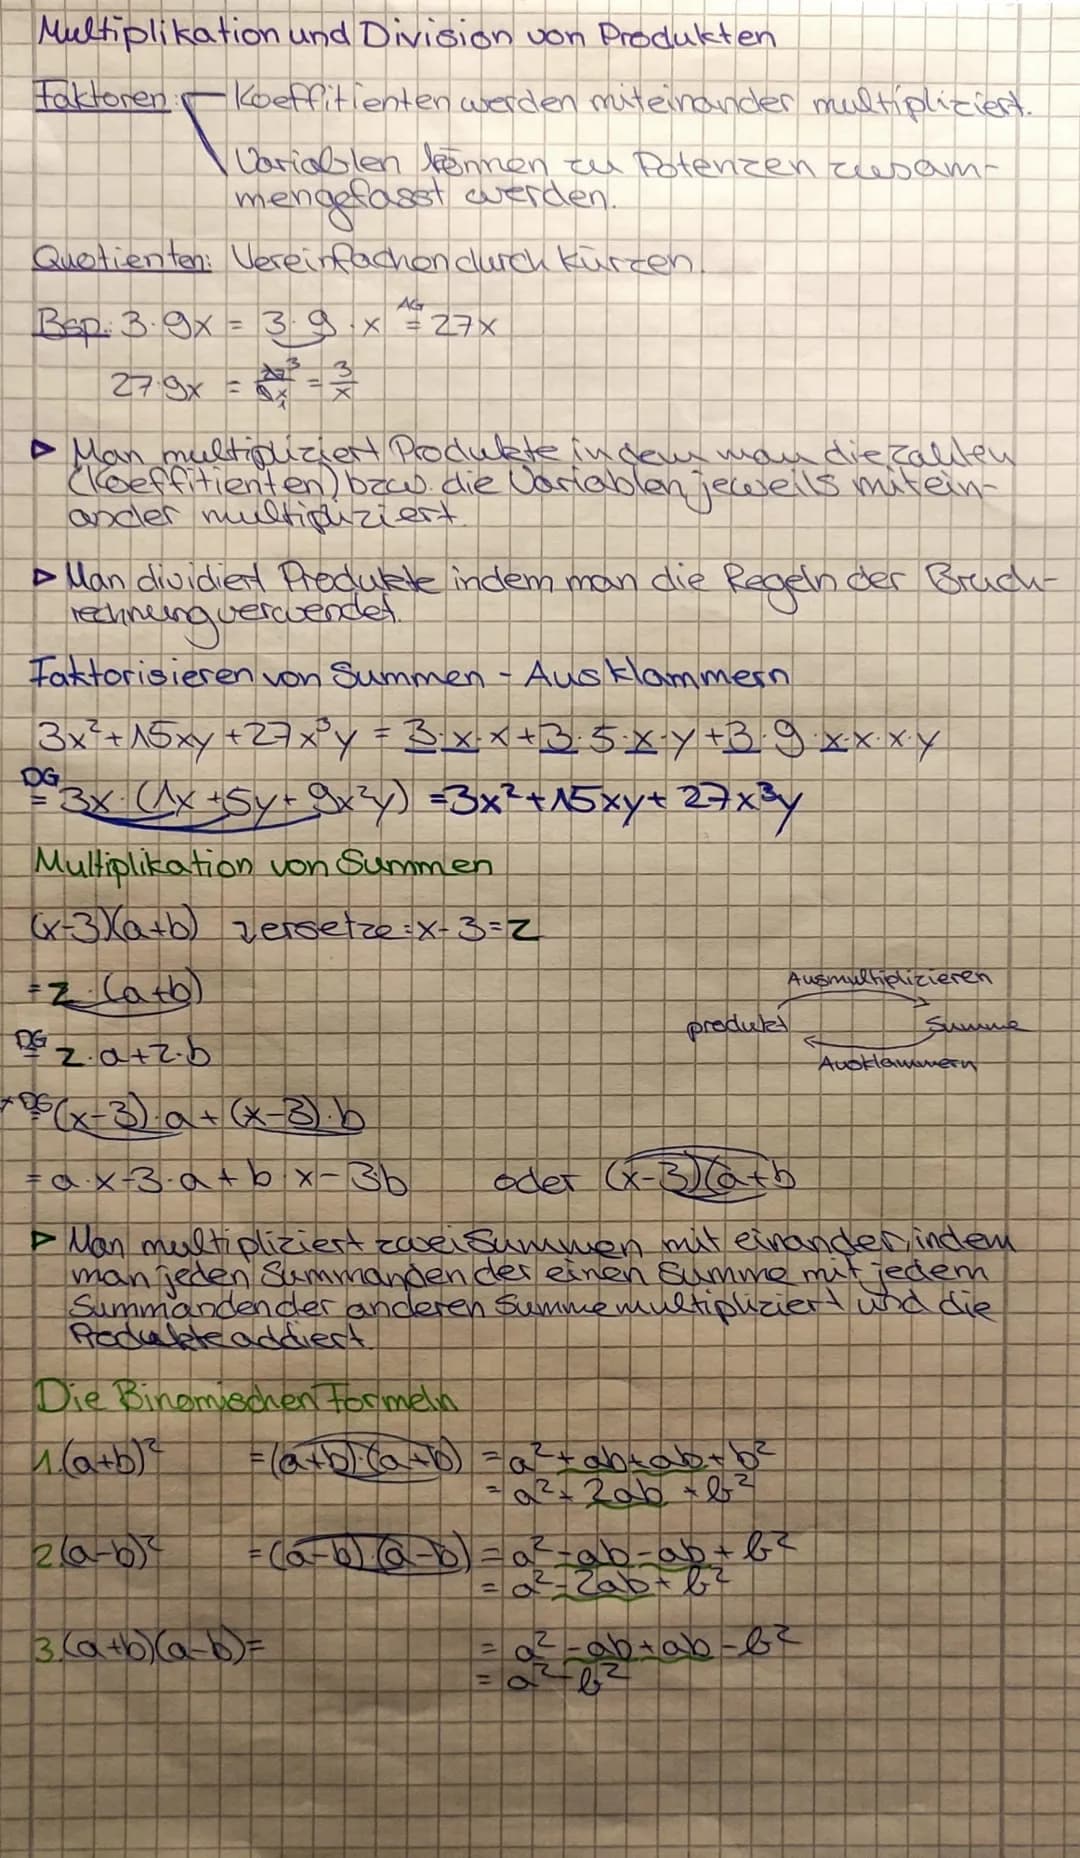 Multiplikation und Division von Produkten
Faktoren: Koeffitienten werden miteinander multipliziert.
Variablen können zu Potenzen zusam-
mengefasst werden.
Quotienten: Vereinfachen durch kürzen.
Bsp.: 3·9x = 3·9·x AG= 27x
27:9x = 27³/9x₁ = 3/x
▷ Man multipliziert Produkte indem man die Zahlen
(Koeffitienten) bzw. die Variablen jeweils mitein-
ander multipliziert.
▷ Man dividiert Produkte indem man die Regeln der Bruch-
rechnung verwendet.
Faktorisieren von Summen - Ausklammern
3x²+15xy+27x³y = 3·x·x+3·5·x·y+3·9·x·x·x·y
DG= 3x·(1x+5y+9x²y) =3x²+15xy+27x³y
Multiplikation von Summen
(x-3)(a+b) zersetze: x-3=z
=z·(a+b)
Ausmultiplizieren
produkt Summe
DG= z·a+z·b
Ausklammern
DG= (x-3)·a+(x-3)·b
=a·x-3·a+b·x-3b oder (x-3)(a+b
▷ Man multipliziert zwei Summen mit einander, indem
man jeden Summanden der einen Summe mit jedem
Summanden der anderen Summe multipliziert und die
Produkte addiert.
Die Binomischen Formeln
1.(a+b)² =(a+b)·(a+b) =a²+ab+ab+b²
= a²+2ab+b²
2(a-b)² =(a-b)·(a-b) =a²-ab-ab+b²
= a²-2ab+b²
3.(a+b)(a-b)= = a²-ab+ab-b²
= a²-b²